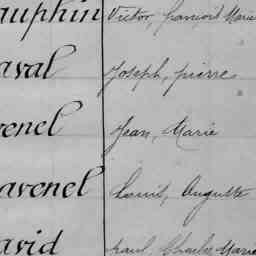 auphin Victor, François Marie
aval Joseph, pierre
enel Jean, Marie
avenel Louis, Auguste
avid Paul, Charles Marie